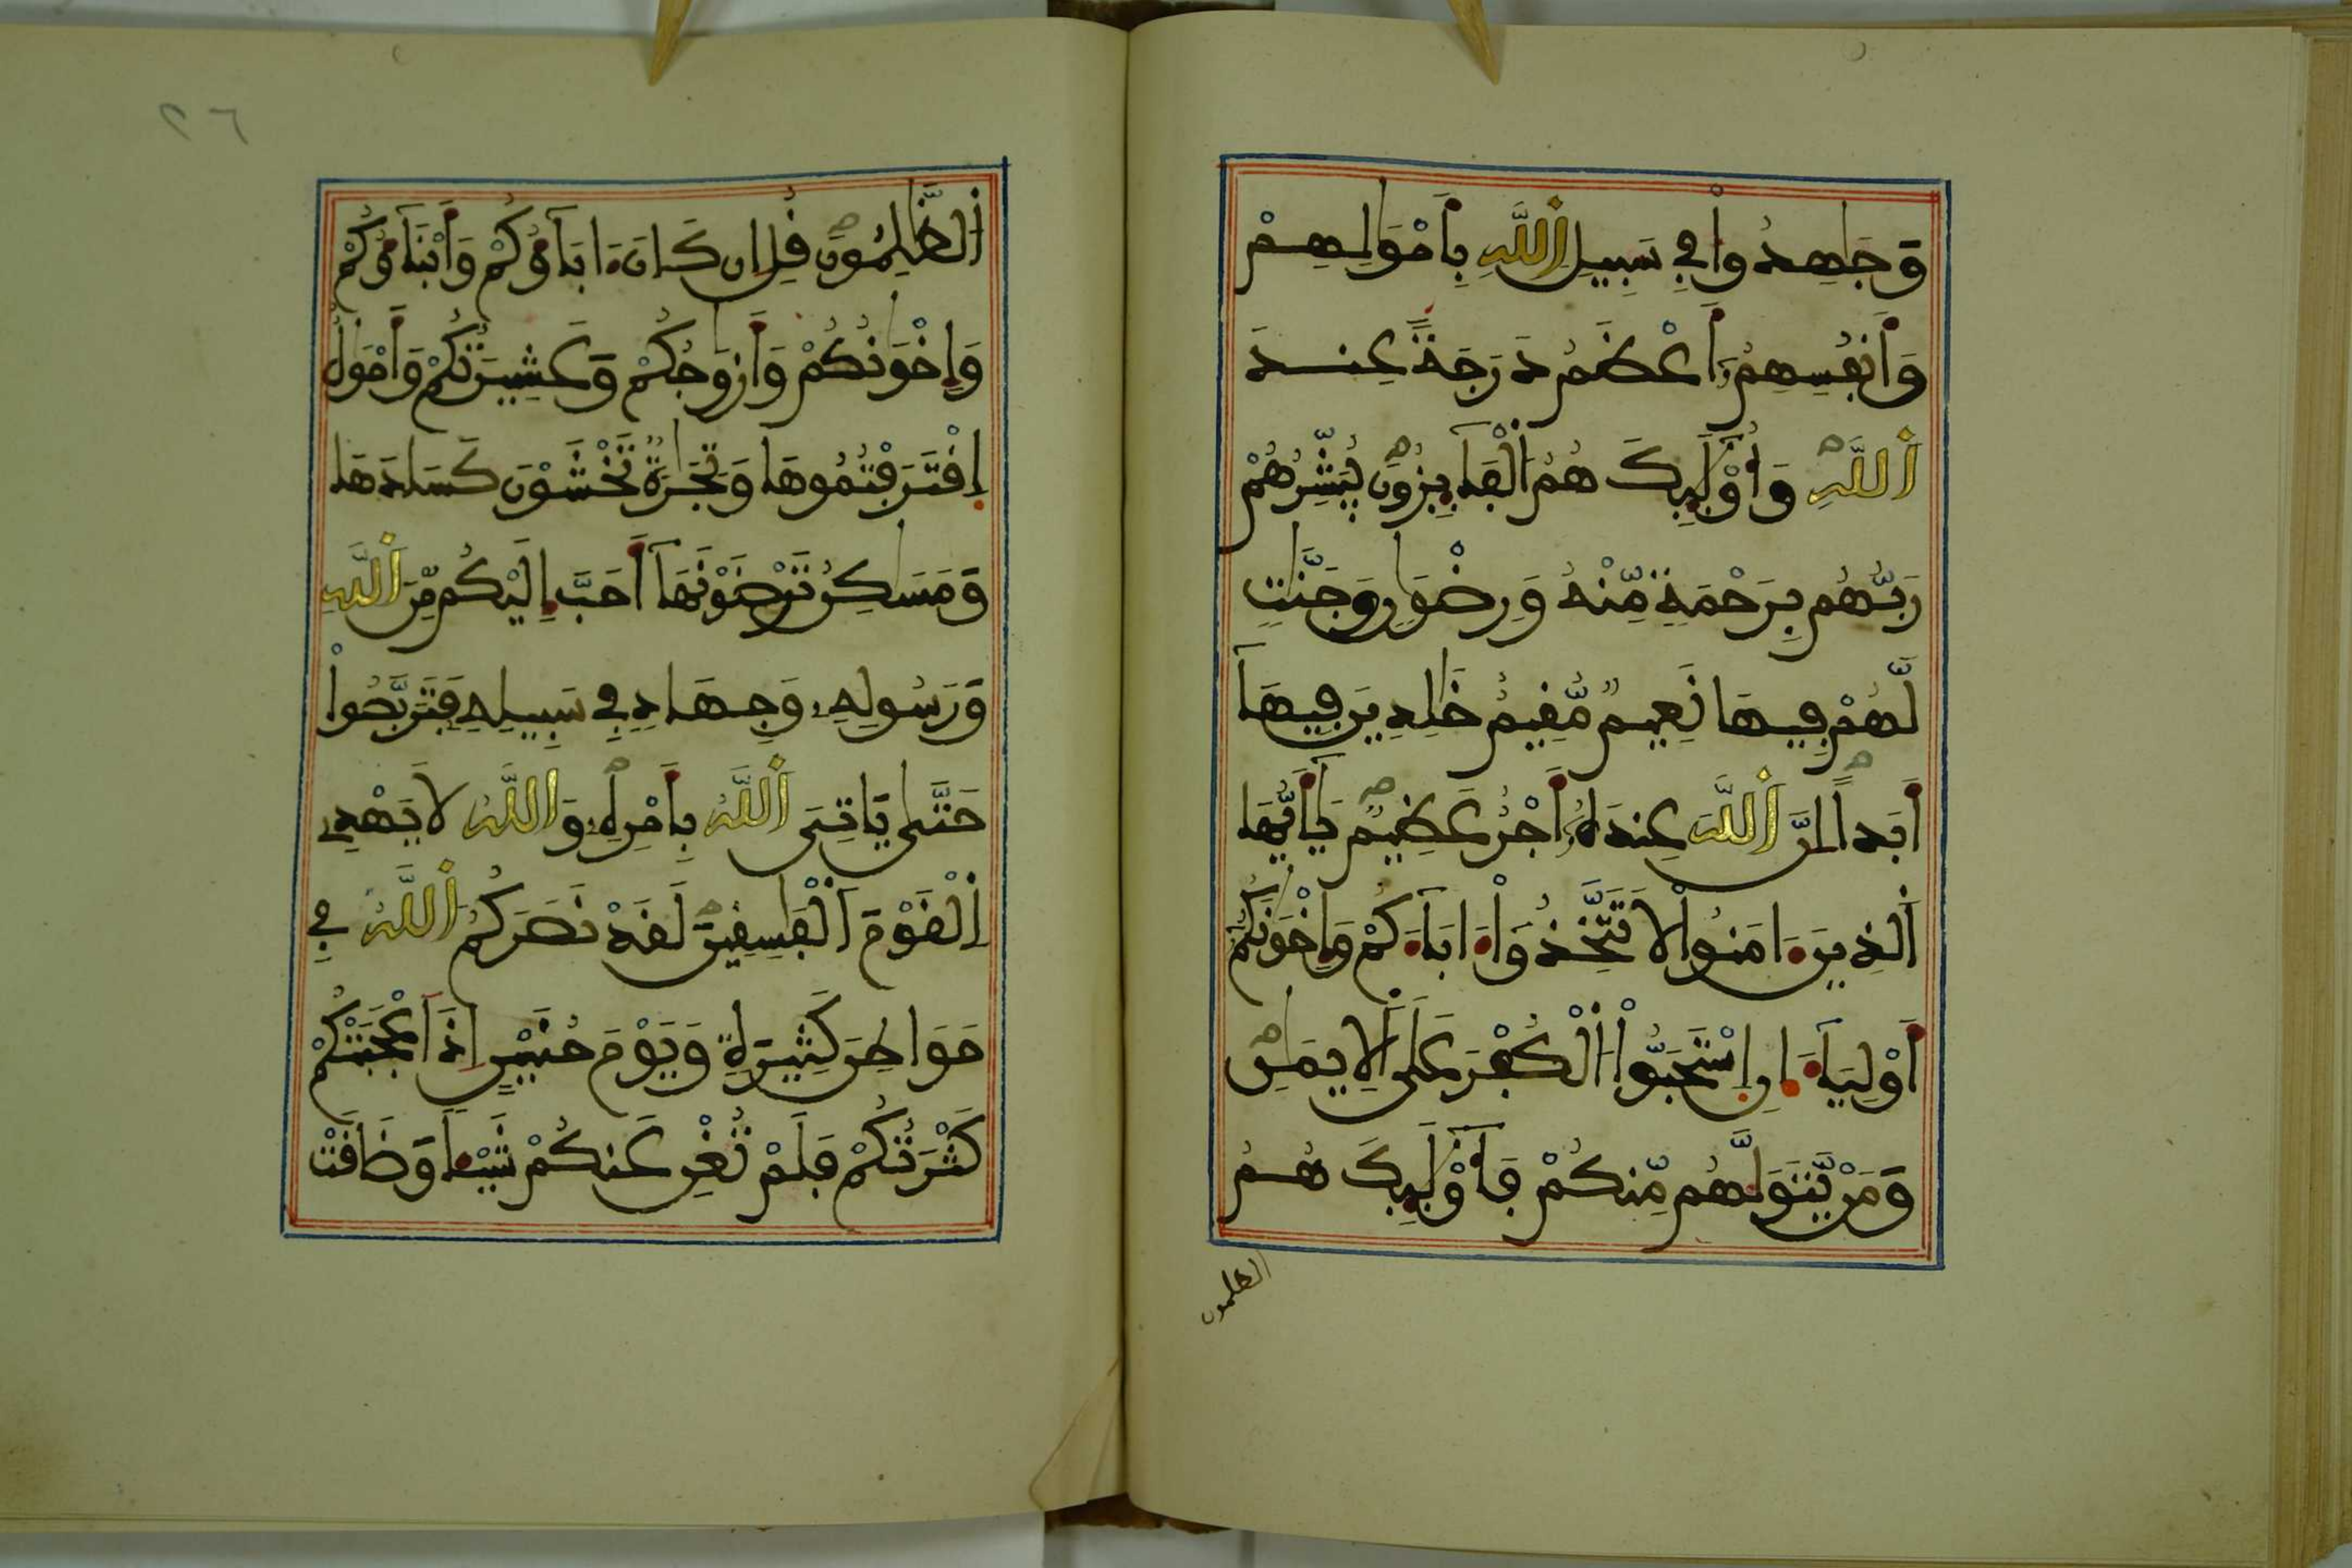 وَجَٰهَدُواْ فِے سَبِيلِ اِ۬للَّهِ بِأَمْوَٰلِهِمْ
وَأَنفُسِهِمُۥٓ أَعْظَمُ دَرَجَةً عِندَ
اَ۬للَّهِ وَأُوْلَٰٓئِكَ هُمُ اُ۬لْفَآئِزُونَ يُبَشِّرُهُمْ
رَبُّهُم بِرَحْمَةٖ مِّنْهُ وَرِضْوَٰنٖ وَجَنَّٰتٖ
لَّهُمْ فِيهَا نَعِيمٞ مُّقِيمٌ خَٰلِدِينَ فِيهَآ
أَبَداًۖ اِنَّ اَ۬للَّهَ عِندَهُۥٓ أَجْرٌ عَظِيمٞ يَٰٓأَيُّهَا
اَ۬لذِينَ ءَامَنُواْ لَا تَتَّخِذُوٓاْ ءَابَآءَكُمْ وَإِخْوَٰنَكُمُۥٓ
أَوْلِيَآءَ اِنِ اِ۪سْتَحَبُّواْ اُ۬لْكُفْرَ عَلَى اَ۬لِايمَٰنِ
وَمَنْ يَّتَوَلَّهُم مِّنكُمْ فَأُوْلَٰٓئِكَ هُمُ
الظلمون
٢٦
اُ۬لظَّٰلِمُونَ قُلِ اِن كَانَ ءَابَآؤُكُمْ وَأَبْنَآؤُكُمْ
وَإِخْوَٰنُكُمْ وَأَزْوَٰجُكُمْ وَعَشِيرَتُكُمْ وَأَمْوَٰلٌ
اِ۪قْتَرَفْتُمُوهَا وَتِجَٰرَةٞ تَخْشَوْنَ كَسَادَهَا
وَمَسَٰكِنُ تَرْضَوْنَهَآ أَحَبَّ إِلَيْكُم مِّنَ اَ۬للَّهِ
وَرَسُولِهِۦ وَجِهَادٖ فِے سَبِيلِهِۦ فَتَرَبَّصُواْ
حَتَّىٰ يَاتِيَ اَ۬للَّهُ بِأَمْرِهِۦ وَاللَّهُ لَا يَهْدِے
اِ۬لْقَوْمَ اَ۬لْفَٰسِقِينَ لَقَدْ نَصَرَكُمُ اُ۬للَّهُ فِے
مَوَاطِنَ كَثِيرَةٖ وَيَوْمَ حُنَيْنٍ اِذَ اَعْجَبَتْكُمْ
كَثْرَتُكُمْ فَلَمْ تُغْنِ عَنكُمْ شَيْـٔاٗ وَضَاقَتْ